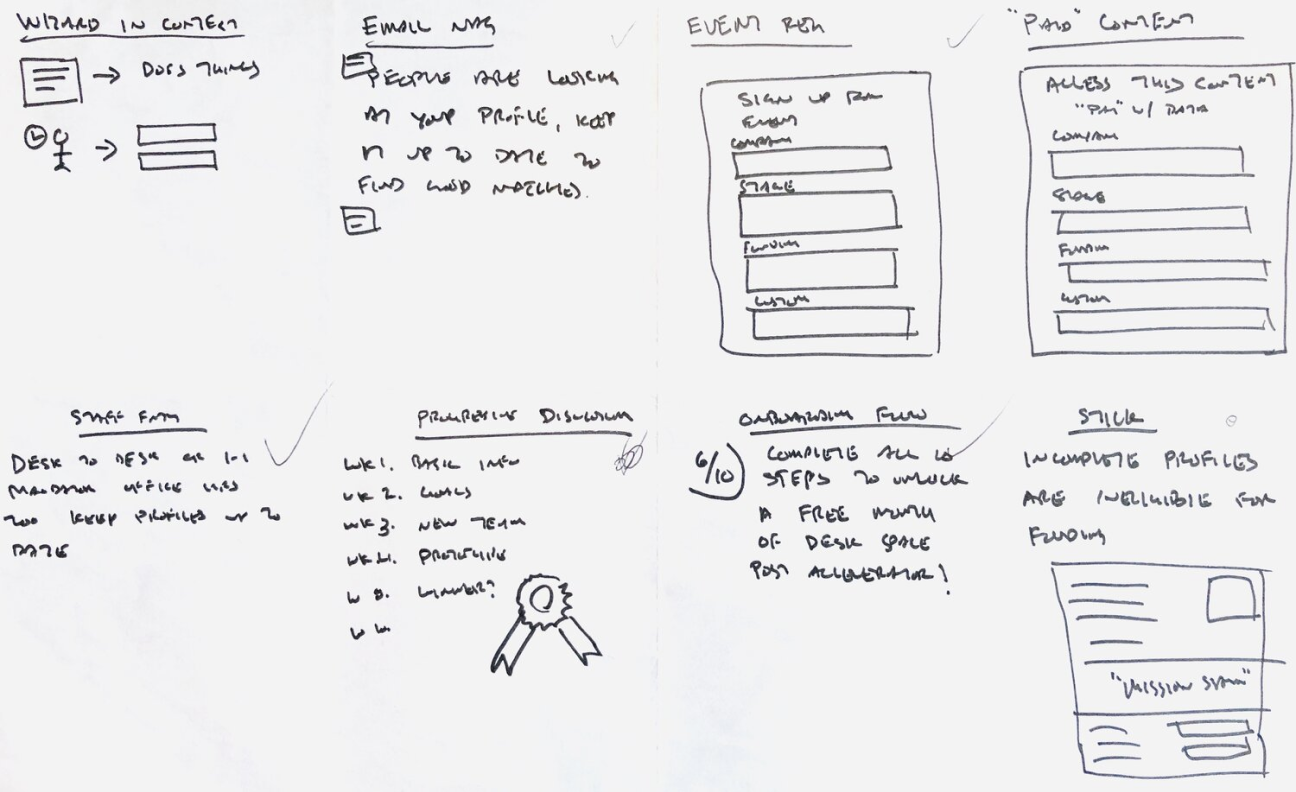 WIZARD IN CONTEXT
→ DOES THINGS
EMAIL NAG
PEOPLE ARE LOOKING
AT YOUR PROFILE, KEEP
IT UP TO DATE TO
FIND GOOD MATCHES.
EVENT REG
SIGN UP FOR
EVENT
COMPANY
STAGE
FUNDING
CUSTOM
"PAID" CONTENT
ACCESS THIS CONTENT
"PAY" W/ DATA
COMPANY
STAGE
FUNDING
CUSTOM
STAFF
DESK TO DESK OR 1-1
OFFICE
TOO KEEP PROFILES UP TO
DATE
PROGRESSIVE
WK 1. BASIC INFO
WK 2. GOALS
WK 3. NEW TEAM
WK 4.
W
W
ONBOARDING FLOW
6/10
COMPLETE ALL 10
STEPS TO UNLOCK
A FREE MONTH
OF DESK SPACE
POST ACCELERATOR!
STICK
INCOMPLETE PROFILES
ARE INELIGIBLE FOR
FUNDING
"MISSION